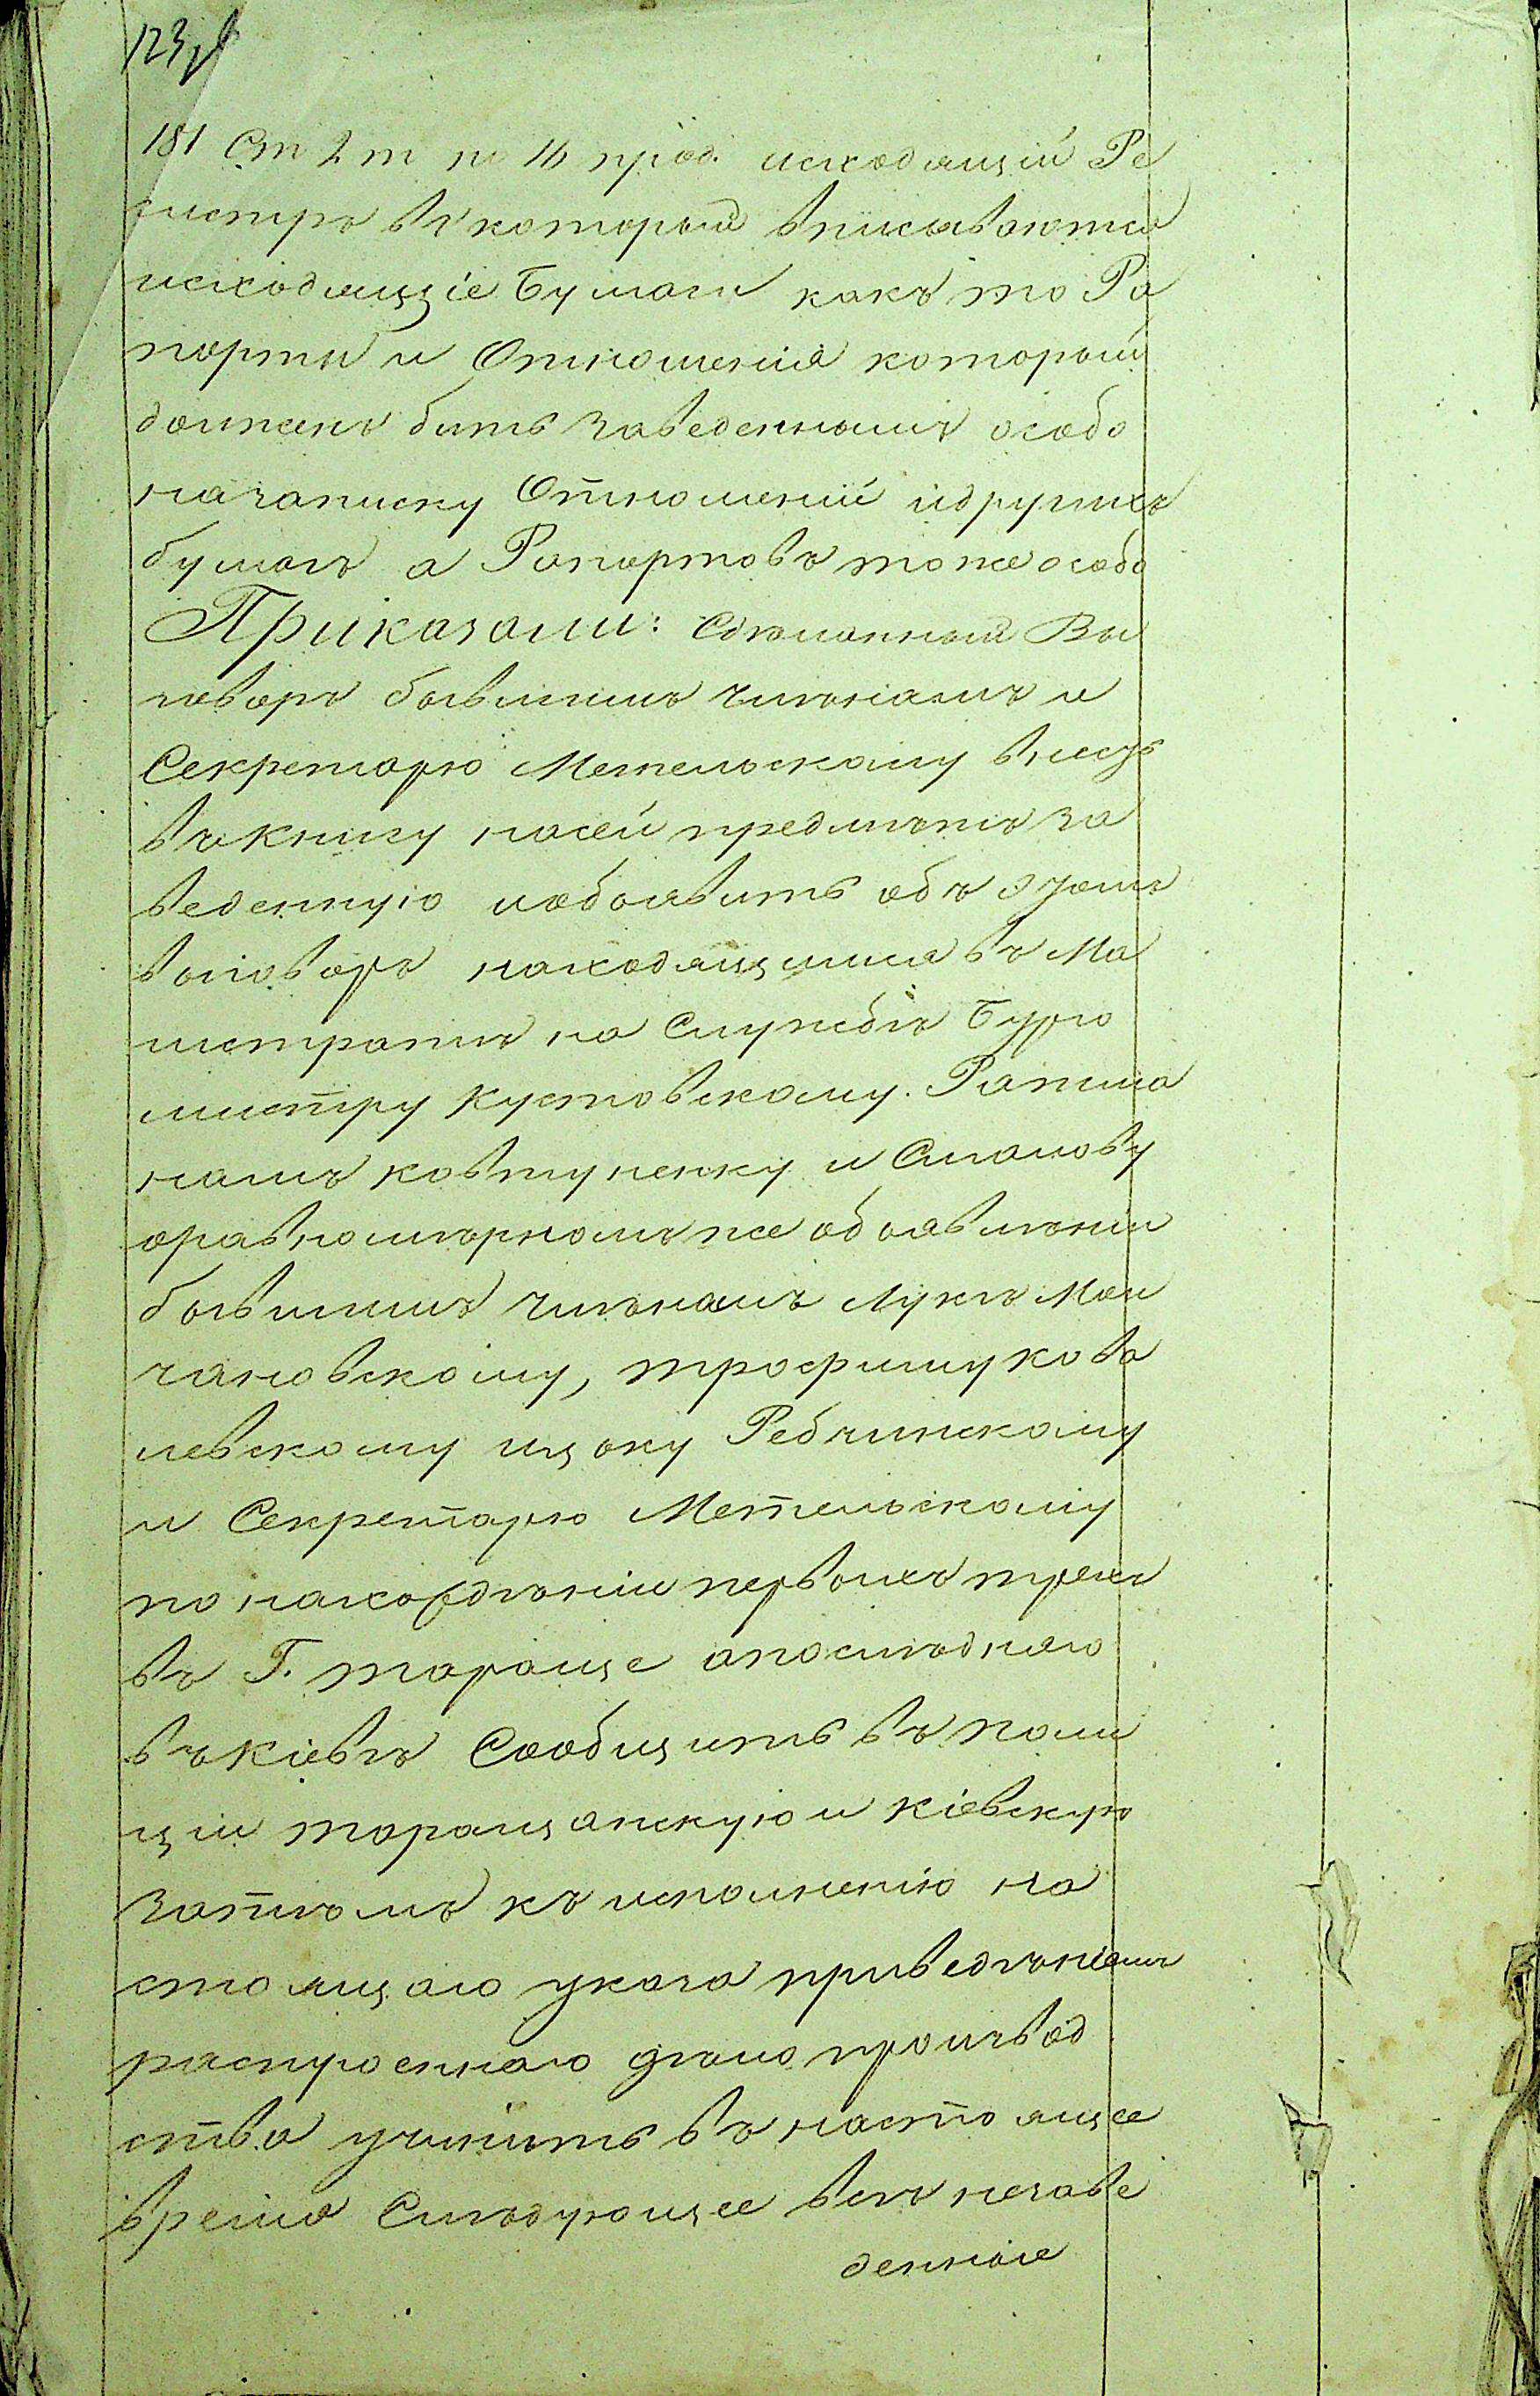 123
181 Ст 2 т по 16 прод. исходящій Ре
гистръ въ который вписываются
исходящіе Бумаги какъ то Ра
порты и Отношенія который
долженъ бить заведеннымъ особо
назаписку Отношеній идругихъ
бумагъ а Рапортовъ тоже особо
Приказали: Сдѣланный Вы
говоръ бывшимъ члѣнамъ и
Секретарю Метельскому внесть
въ книгу насей предмѣтъ за
веденную иобъявить объ этомъ
выговорѣ находящимся въ Ма
истратѣ на Службѣ Бурго
мистру Кустовскому. Ратма
намъ ковтуненку и Сманову
оравномѣрномъ же объявлѣнии
бывшимъ члѣнамъ Лукѣ Мол
чановскому, трофиму кова
левскому ицку Ребчинскому
и Секретарю Метельскому
по нахождѣнію первыхъ трехъ
въ Г. тараще апослѣдняго
въ Кіевѣ Сообщить въ поли
ціи таращанскую и кіевскую
Затѣмъ къ исполненію на
стоящаго указа приведѣніемъ
разстроеннаго дѣлопроизвод
ства учинить въ настоящее
время Слѣдующее всѣ незаве
денные